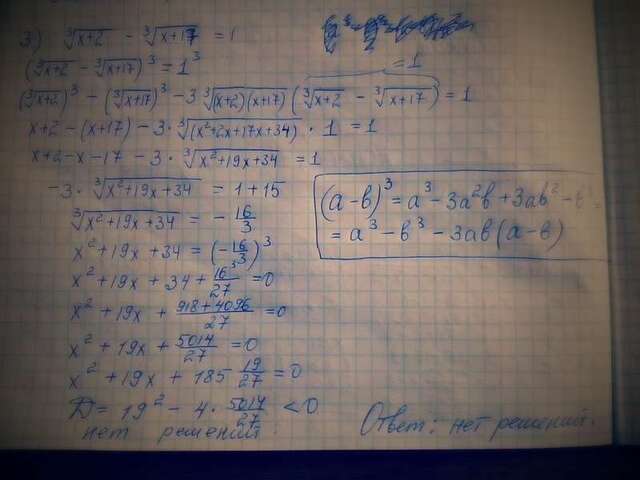 3.) ∛(x+2) - ∛(x+17) = 1
(∛(x+2) - ∛(x+17))³ = 1³
=1
(∛(x+2))³ - (∛(x+17))³ - 3∛((x+2)(x+17)) (∛(x+2) - ∛(x+17)) = 1
x+2 - (x+17) - 3·∛(x²+2x+17x+34) · 1 = 1
x+2-x-17 - 3·∛(x²+19x+34) = 1
-3·∛(x²+19x+34) = 1+15
∛(x²+19x+34) = -16/3
x²+19x+34 = (-16/3)³
x²+19x+34+16³/27 = 0
x²+19x+(918+4096)/27 = 0
x²+19x+5014/27 = 0
x²+19x+185 19/27 = 0
D = 19² - 4·5014/27 < 0
нет решений.
(a-b)³ = a³ - 3a²b + 3ab² - b³ =
= a³ - b³ - 3ab(a-b)
Ответ: нет решений.